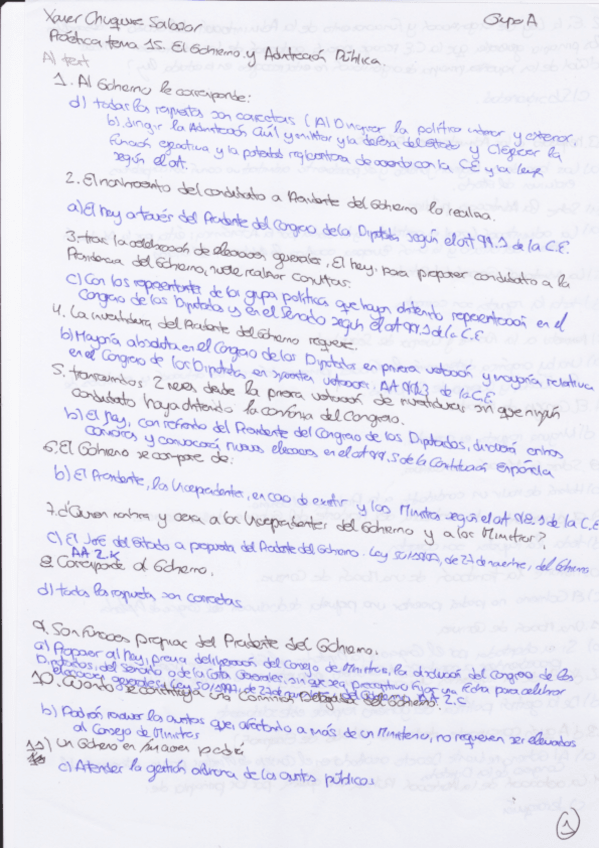 Xavier Chuquive Salazar Grupo A
Práctica tema 15. El Gobierno y Administración Pública.
A) test
1. Al Gobierno le corresponde:
d) todas las respuestas son correctas (A) Dirigir la política interior y exterior,
b) dirigir la Administración Civil y militar y la defensa del Estado y c) ejercer la
función ejecutiva y la potestad reglamentaria de acuerdo con la CE y las leyes
según el art.
2. El nombramiento del candidato a Presidente del Gobierno lo realiza.
a) El Rey a través del Presidente del Congreso de los Diputados según el art 99.1 de la C.E.
3. tras la celebración de elecciones generales, El Rey, para proponer candidato a la
Presidencia del Gobierno, suele realizar consultas.
c) Con los representantes de los grupos políticos que hayan obtenido representación en el
Congreso de los Diputados y en el Senado según el art 99.1 de la C.E
4. La investidura del Presidente del Gobierno requiere.
b) Mayoría absoluta en el Congreso de los Diputados en primera votación y mayoría relativa
en el Congreso de los Diputados, en votación. 99.3 de la C.E.
5. transcurridos 2 meses desde la primera votación de investidura sin que ningún
candidato haya obtenido la confianza del Congreso.
b) El Rey, con refrendo del Presidente del Congreso de los Diputados, disolverá ambas
cámaras y convocará nuevas elecciones en el art 99.5 de la Constitución Española
6. El Gobierno se compone de:
b) El Presidente, los Vicepresidentes, en caso de existir y los Ministros según el art 98.1 de la C.E
7. ¿Quien nombra y cesa a los Vicepresidentes del Gobierno y a los Ministros?
c) El Jefe del Estado a propuesta del Presidente del Gobierno. Ley 50/1997, de 27 de noviembre, del Gobierno
8. Corresponde al Gobierno.
d) todas las respuestas son correctas
9. Son funciones propias del Presidente del Gobierno.
a) Proponer al Rey, previa deliberación del Consejo de Ministros, la disolución del Congreso de los
Diputados, del Senado o de las Cortes Generales, sin que sea preceptivo fijar una fecha para celebrar
elecciones generales. Ley 50/1997, de 27 de noviembre del Gobierno. 2.C
10. Cuando se constituya una Comisión Delegada del Gobierno.
b) Podrán resolver los asuntos que, afectando a más de un Ministerio, no requieren ser elevados
al Consejo de Ministros
11) Un Gobierno en funciones podrá
c) Atender la gestión ordinaria de los asuntos públicos
1